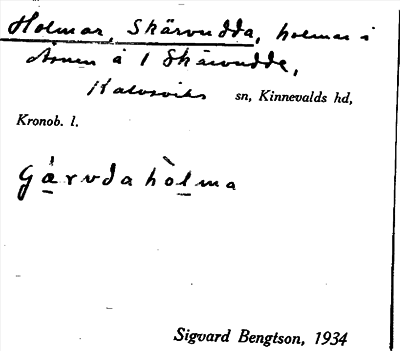 Holmar, Skärvudda, holmar i
Åsnen å 1 Skärvudde,
Kalvsviks sn, Kinnevalds hd,
Kronob. l.
Gárvdahòlma
Sigvard Bengtson, 1934